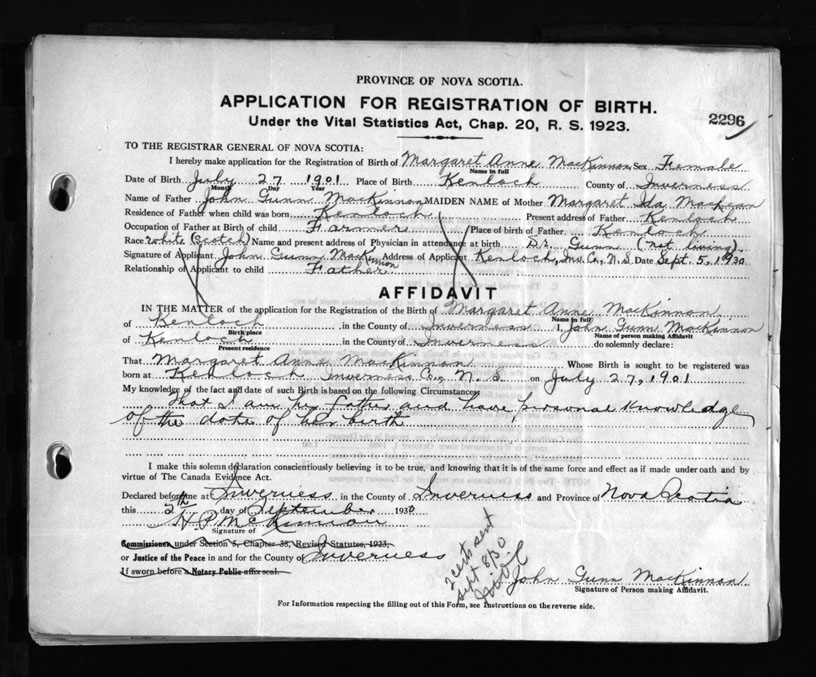 PROVINCE OF NOVA SCOTIA.
APPLICATION FOR REGISTRATION OF BIRTH.
2296
Under the Vital Statistics Act, Chap. 20, R. S. 1923.
TO THE REGISTRAR GENERAL OF NOVA SCOTIA:
I hereby make application for the Registration of Birth of Margaret Anne MacKinnon Sex Female
Name in full
Date of Birth July 27 1901 Place of Birth Kenloch County of Inverness
Month Day Year
Name of Father John Gunn MacKinnon MAIDEN NAME of Mother Margaret Ida MacLean
Residence of Father when child was born Kenloch Present address of Father Kenloch
Occupation of Father at Birth of child Farmer Place of birth of Father Kenloch
Race white (Scotch) Name and present address of Physician in attendance at birth Dr. Gunn (not living).
Signature of Applicant John Gunn MacKinnon Address of Applicant Kenloch, Inv. Co., N. S. Date Sept. 5, 1930
Relationship of Applicant to child Father
AFFIDAVIT
IN THE MATTER of the application for the Registration of the Birth of Margaret Anne MacKinnon
Name in full
of Kenloch in the County of Inverness I, John Gunn MacKinnon
Birth place Name of person making Affidavit
of Kenloch in the County of Inverness do solemnly declare:
Present residence
That Margaret Anne MacKinnon Whose Birth is sought to be registered was
born at Kenloch Inverness Co., N. S. on July 27, 1901
My knowledge of the fact and date of such Birth is based on the following Circumstances
That I am her father and have personal knowledge
of the date of her birth
I make this solemn declaration conscientiously believing it to be true, and knowing that it is of the same force and effect as if made under oath and by
virtue of The Canada Evidence Act.
Declared before me at Inverness in the County of Inverness and Province of Nova Scotia
this 5th day of September 1930
H P McKinnon
Signature of
Commissioner, under Section 5, Chapter 38, Revised Statutes, 1923,
or Justice of the Peace in and for the County of Inverness
If sworn before a Notary Public affix seal.
2 certs sent
Sept 8/30
John Gunn MacKinnon
Signature of Person making Affidavit.
For Information respecting the filling out of this Form, see Instructions on the reverse side.